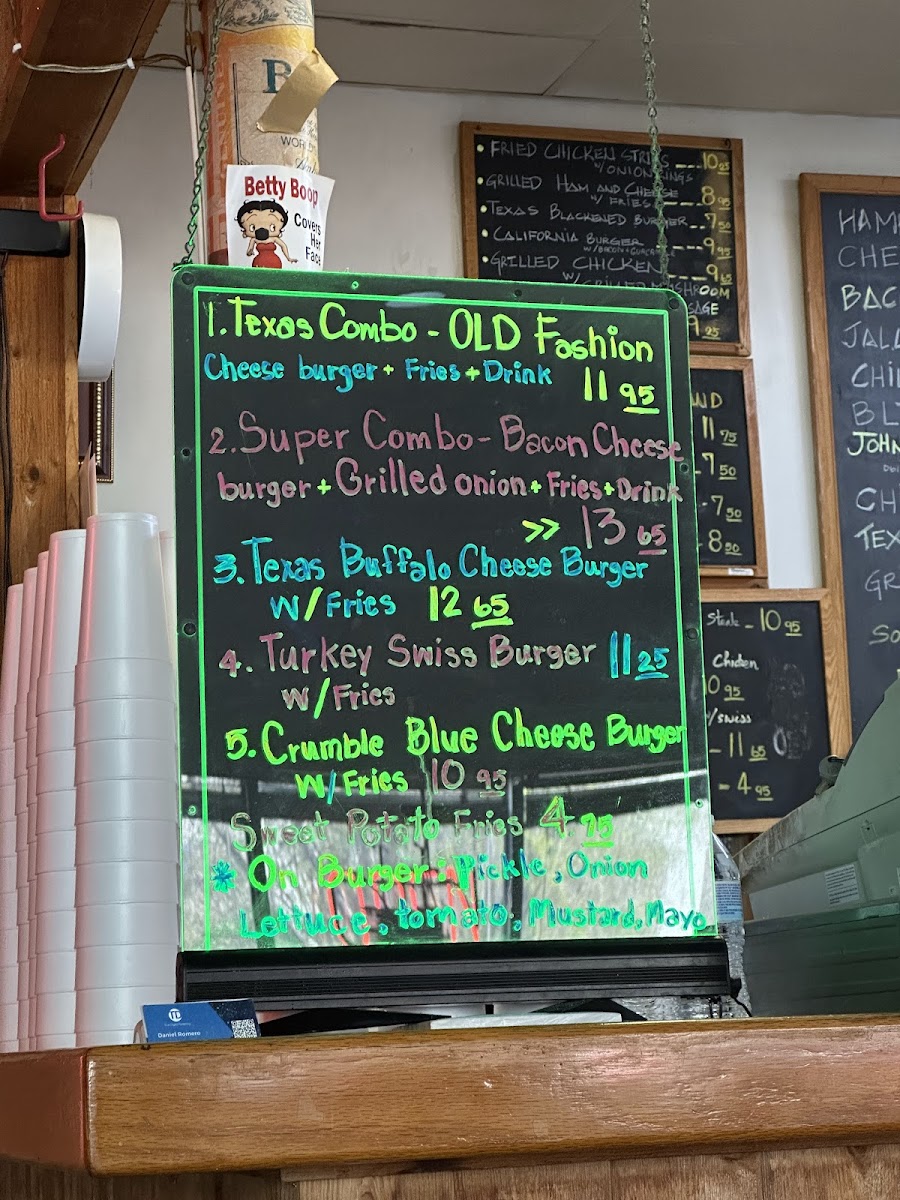 B
WOR
Betty Boop
Covers
Her
Face
FRIED CHICKEN STRIPS 10 25
W/ ONION RINGS
GRILLED HAM AND CHEESE 8 95
W/ FRIES
TEXAS BLACKENED BURGER 7 50
CALIFORNIA BURGER 9 95
W/BACON+GUACAMOLE
GRILLED CHICKEN 9 65
W/ GRILLED MUSHROOM
SAGE
9 25
1. Texas Combo - OLD Fashion
Cheese burger + Fries + Drink 11 95
2. Super Combo - Bacon Cheese
burger + Grilled onion + Fries + Drink
>> 13 65
3. Texas Buffalo Cheese Burger
W/ Fries 12 65
4. Turkey Swiss Burger 11 25
W/ Fries
5. Crumble Blue Cheese Burger
W/ Fries 10 95
Sweet Potato Fries 4 75
* On Burger: Pickle, Onion
Lettuce, tomato, Mustard, Mayo
ND
11 75
7 50
7 50
8 50
Steak - 10 95
Chicken
0 95
/SWISS
- 11 65
- 4 95
HAM
CHE
BAC
JALA
CHI
BL
JOHN
CHI
TEX
GR
SO
Daniel Romero